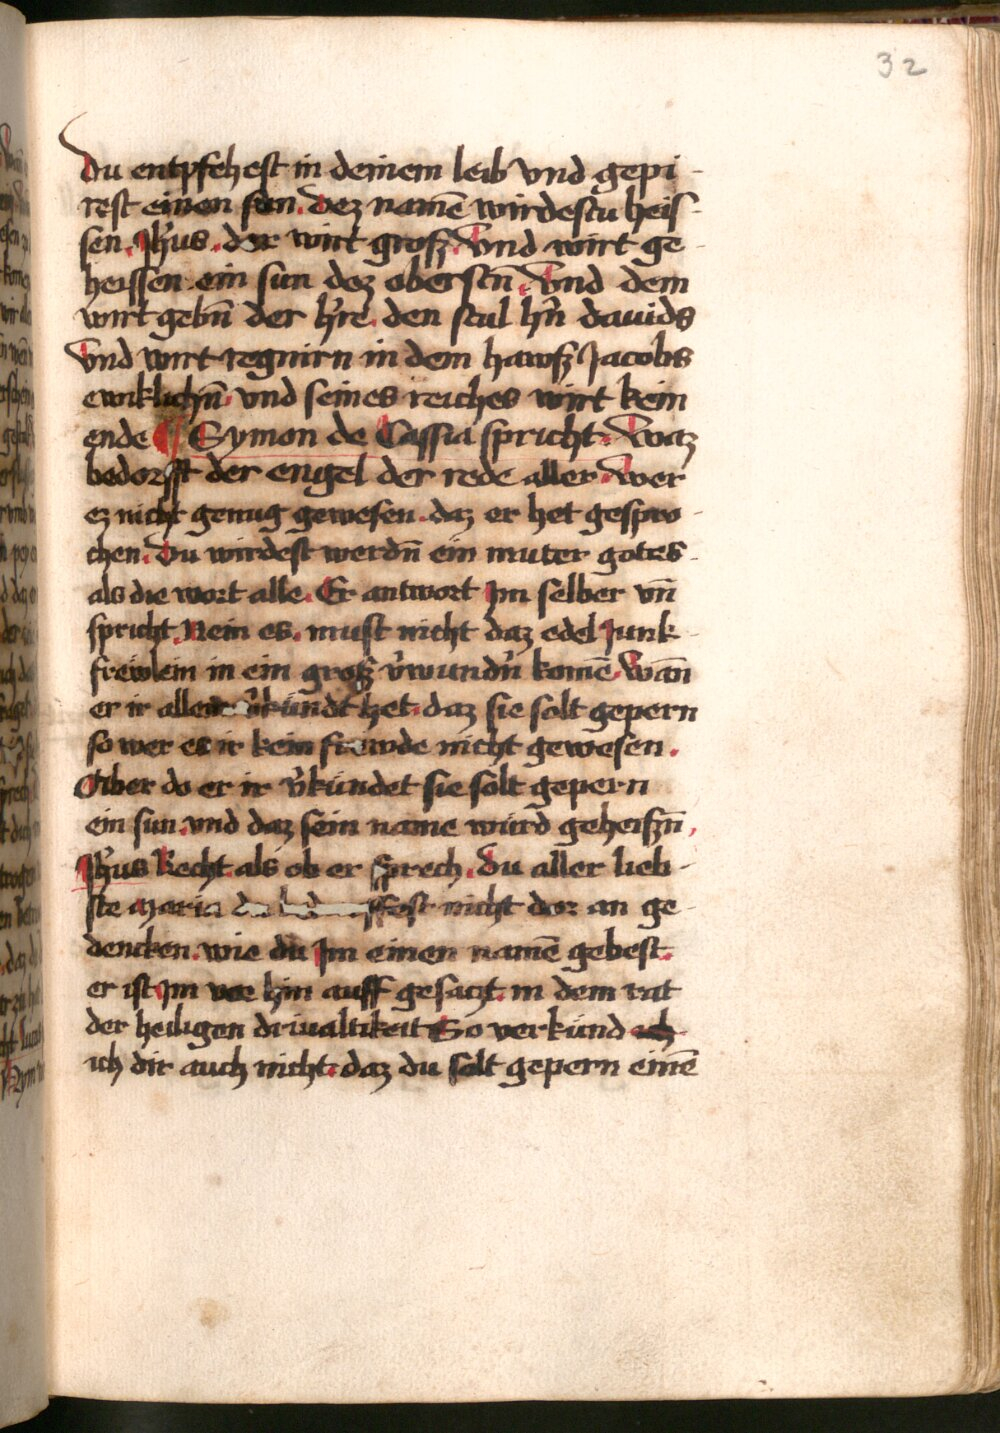 32
Du entpfehest in deinem leib vnd gepi-
rest einen sun. dez namē wirdestu heis-
sen. Jh̄us. der wirt groß. vnd wirt ge-
heissen ein sun dez oberstn̄. Vnd dem
wirt gebn̄ der h're. den stul h'n dauids
Vnd wirt regnirn in dem hawß Jacobs
ewiklichn̄ vnd seines reiches wirt kein
ende ¶ Symon de Cassia spricht. Waz
bedorfft der engel der rede aller. Wer
ez nicht genug gewesen. daz er het gespro-
chen. Du wirdest werdn̄ ein muter gotes-
als die wort alle. Er antwort Jm selber vn̄
spricht. Nein es. must nicht daz edel Junk-
frewlem in ein groß v'wundn̄ komē. Wan̄
er ir v'kündt het. daz sie solt gepern
so wer es ir kein frewde nicht gewesen.
Aber do er ir v'kündet sie solt gepern
ein sun. vnd daz sein name würd geheißn̄.
Jh̄us Recht als ob er sprech. Du aller lieb-
ste Maria nicht dor an ge-
dencken. wie du Jm einen namē gebest.
er ist Jm vor hin auff gesaczt. in dem rat
der heiligen driualtikeit So verkünd
ich dir auch nicht. daz du solt gepern einē